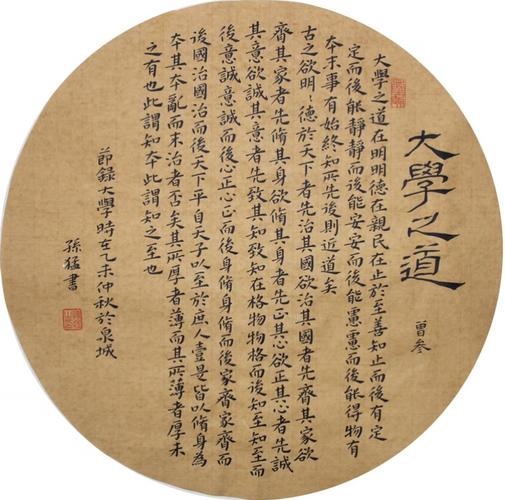 大學之道
曾参
大學之道在明明德在親民在止於至善知止而後有定
定而後能靜靜而後能安安而後能慮慮而後能得物有
本末事有始終知所先後則近道矣
古之欲明〻德於天下者先治其國欲治其國者先齊其家欲
齊其家者先脩其身欲脩其身者先正其心欲正其心者先誠
其意欲誠其意者先致其知致知在格物物格而後知至知至而
後意誠意誠而後心正心正而後身脩身脩而後家齊家齊而
後國治國治而後天下平自天子以至於庶人壹是皆以脩身為
本其本亂而末治者否矣其所厚者薄而其所薄者厚未
之有也此謂知本此謂知之至也
節錄大學時在乙未仲秋於泉城
孫猛書